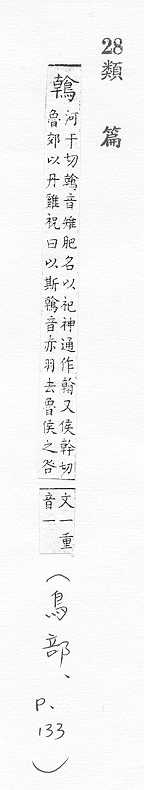 28類篇
鶾
河干切鶾音雉肥名以祀神通作翰又侯幹切
魯郊以丹雞祝曰以斯鶾音赤羽去魯侯之咎
文一重
音一
(鳥部、P.133)